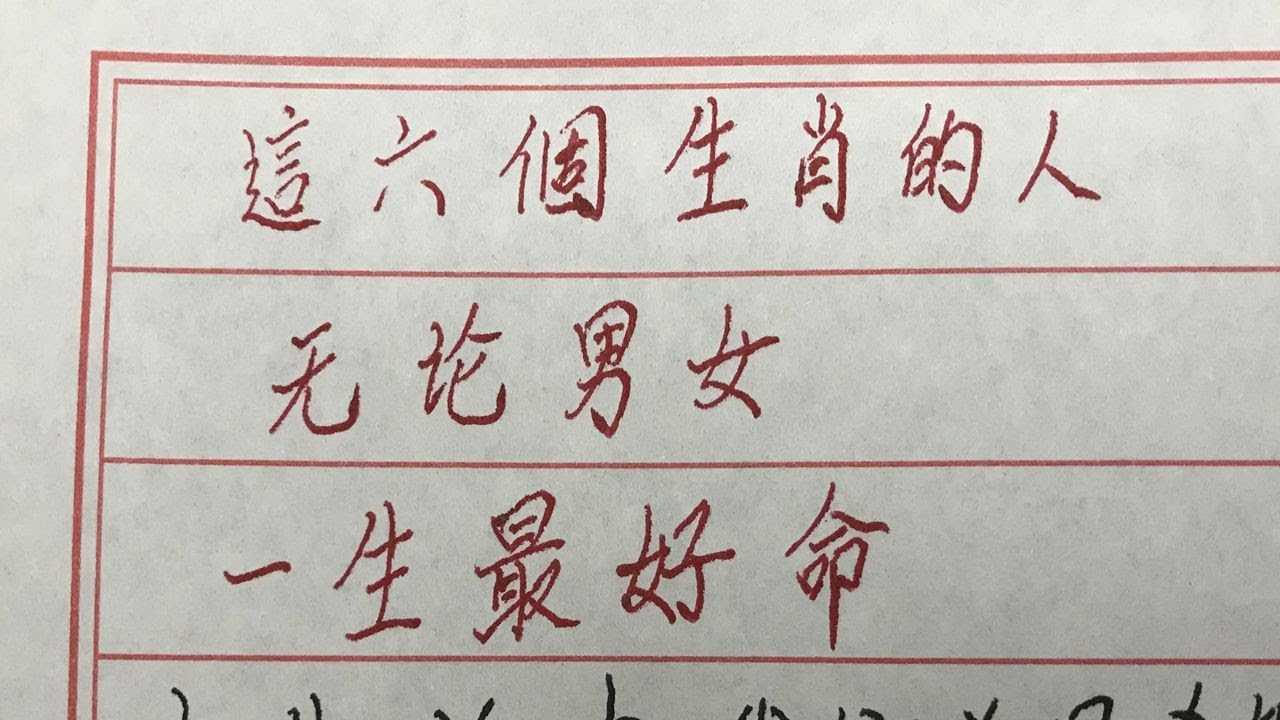 這六個生肖的人
无论男女
一生最好命